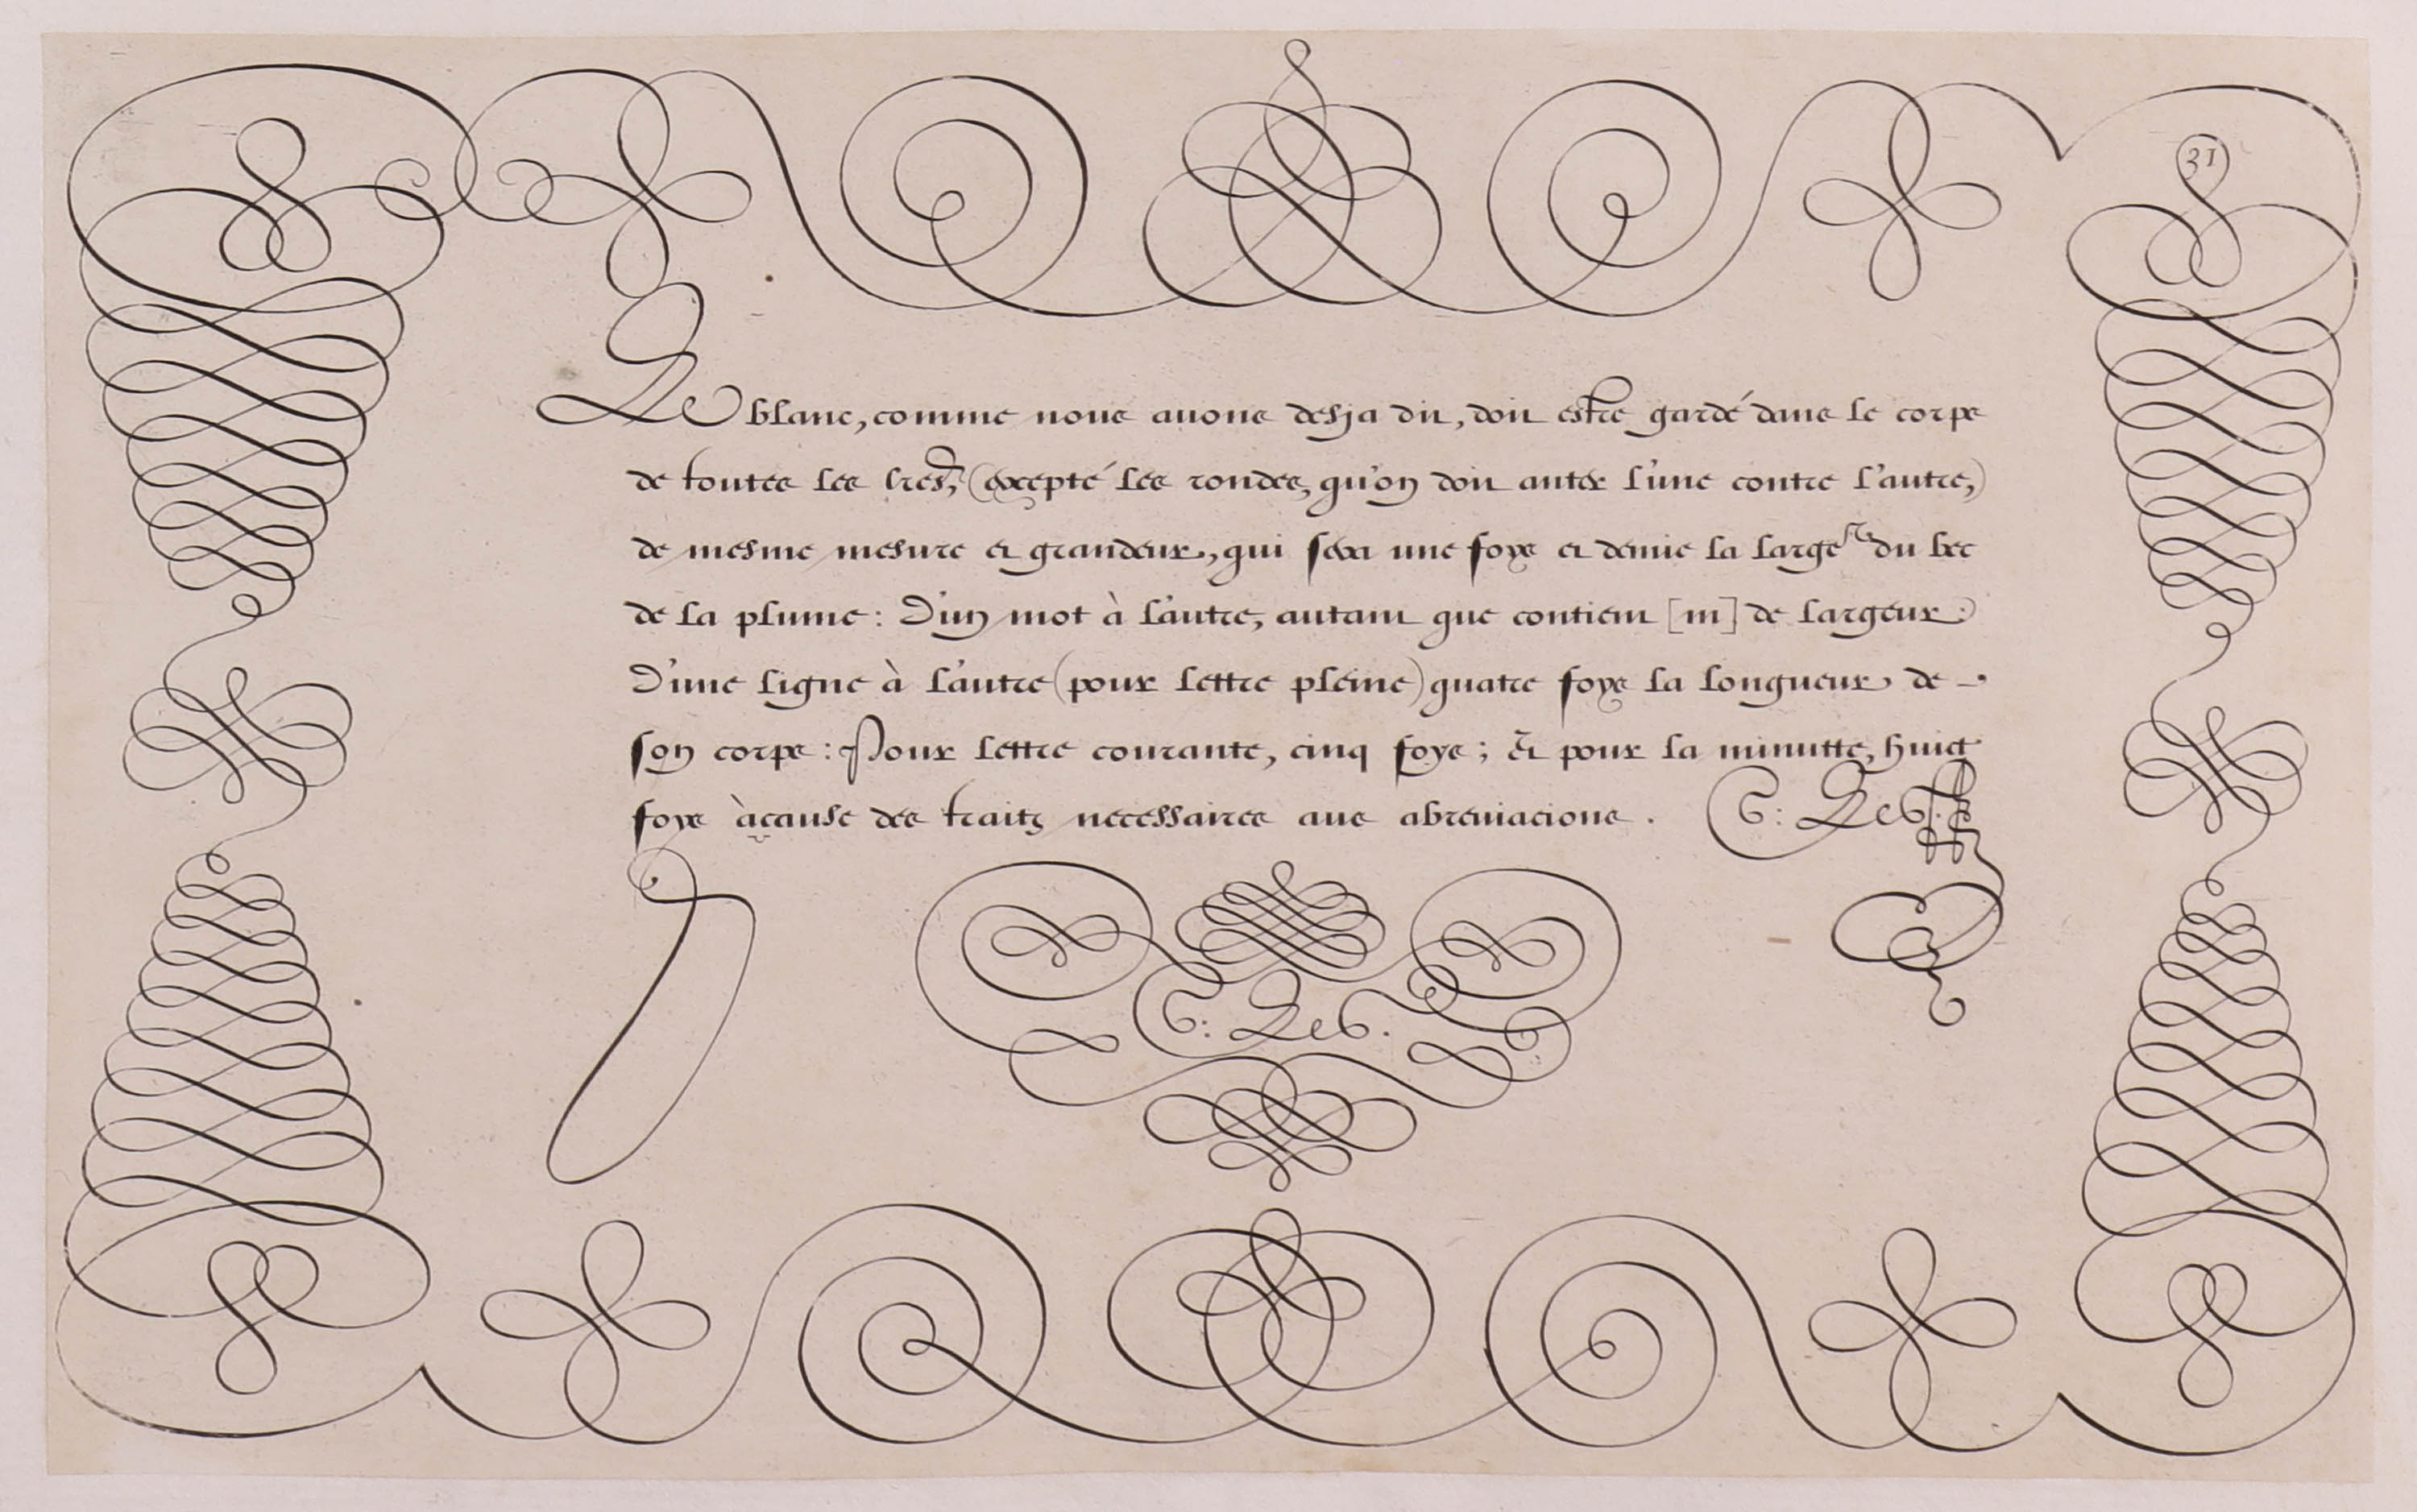 31
Le blanc, comme nous auons desja dit, doit estre gardé dans le corps
de toutes les lres, (excepté les rondes, qu'on doit anter l'une contre l'autre,)
de mesme mesure et grandeur, qui sera une foys et demie la largeʳ du bec
de la plume : D'un mot à l'autre, autant que contient [m] de largeur :
D'une ligne à l'autre (pour lettre pleine) quatre foys la longueur de -.
son corps : Pour lettre courante, cinq foys ; Et pour la minutte, huict
foys à cause des traitz necessaires aus abreuiacions . G: LeG.
G: LeG.